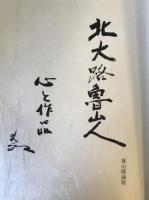 北大路魯山人
心と作品